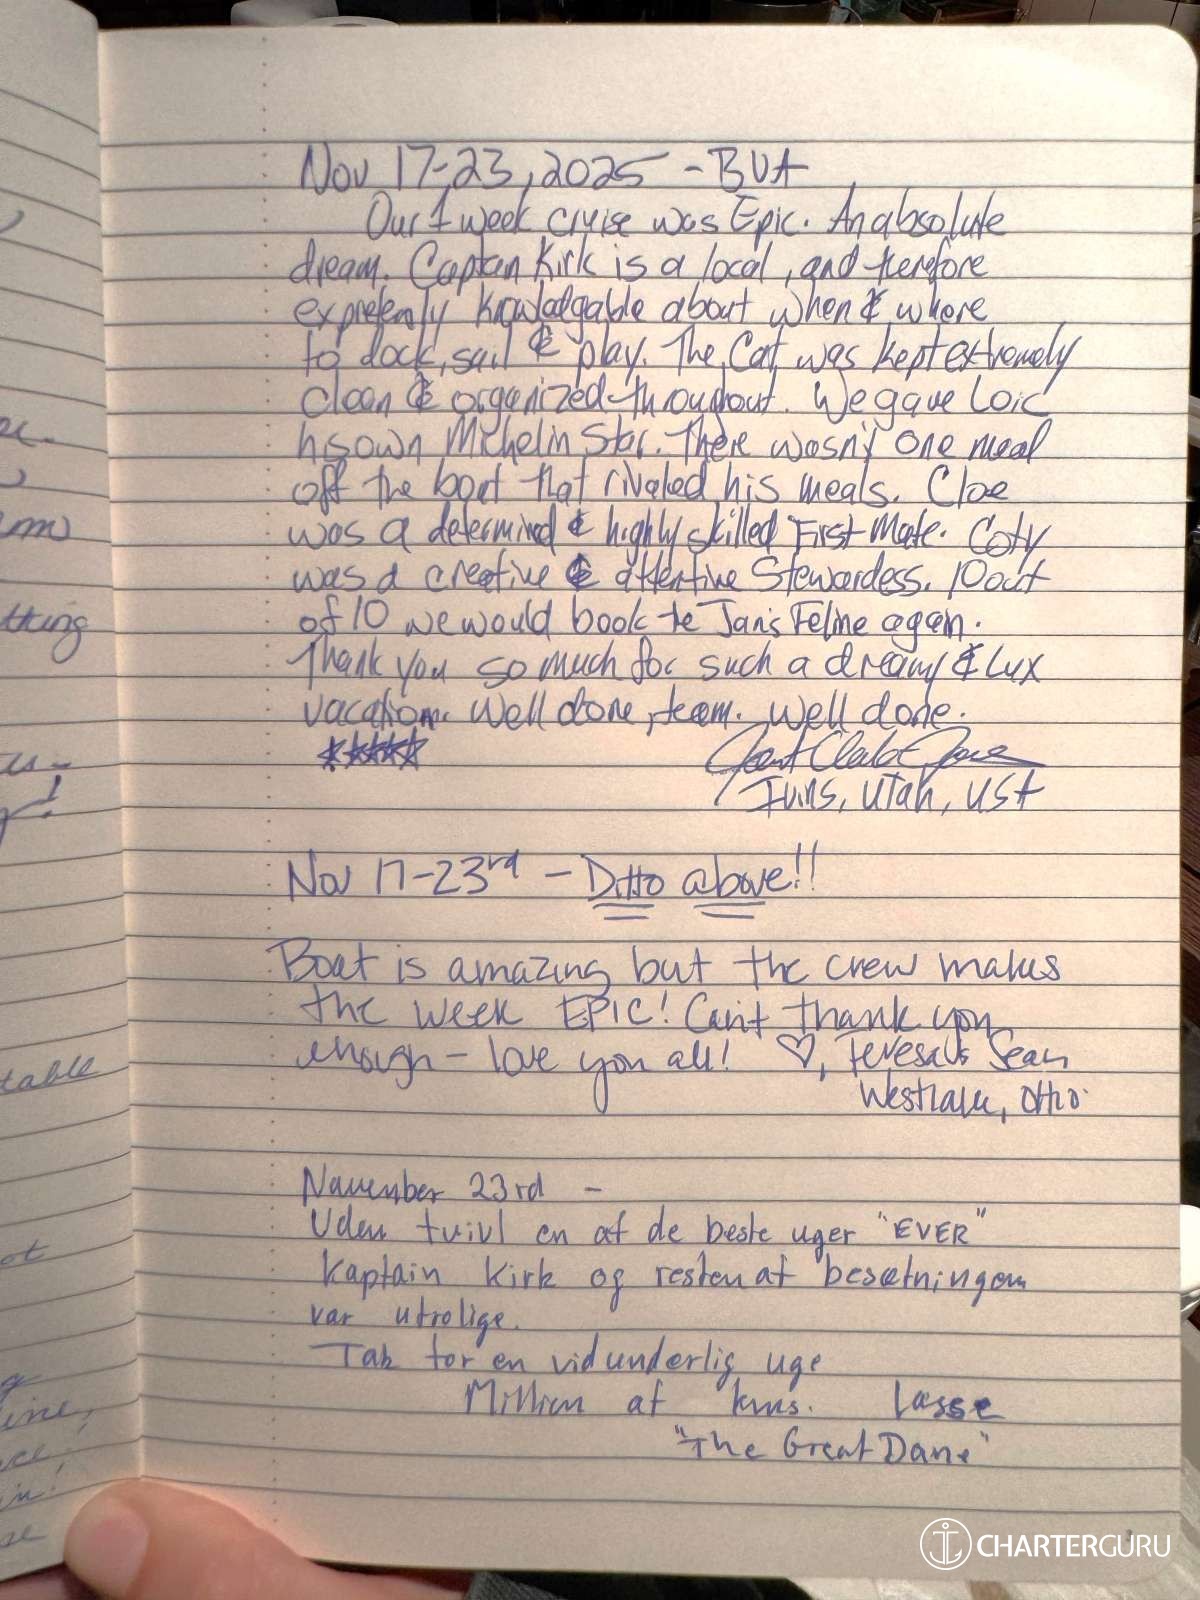 Nov 17-23, 2025 - BVA
Our 1 week cruise was Epic. An absolute
dream. Captan Kirk is a local, and therefore
knowledgable about when & where
to dock, sail & play. The Cat was kept extremely
clean & organized throughout. We gave Loic
his own Michelin Star. There wasn't one meal
off the boat that rivaled his meals. Cloe
was a determind & highly skilled First Mate. Coty
was a creative & attentive Stewardess. 10 out
of 10 we would book te Jan's Feline again.
Thank you so much for such a dreamy & Lux
vacation. Well done, team. Well done.
★★★★★
Ivins, Utah, USA
Nov 17-23rd - Ditto above!!
Boat is amazing but the crew makes
the week EPIC! Can't thank you
enough - love you all! ♡, Teresa & Sean
Westlake, Ohio
November 23rd -
Uden tvivl en af de beste uger "EVER"
Kaptain Kirk og resten af besætningen
var utrolige.
Tak for en vidunderlig uge
Million af kms. Lasse
"The Great Dane"
thing
table
ot
CHARTERGURU